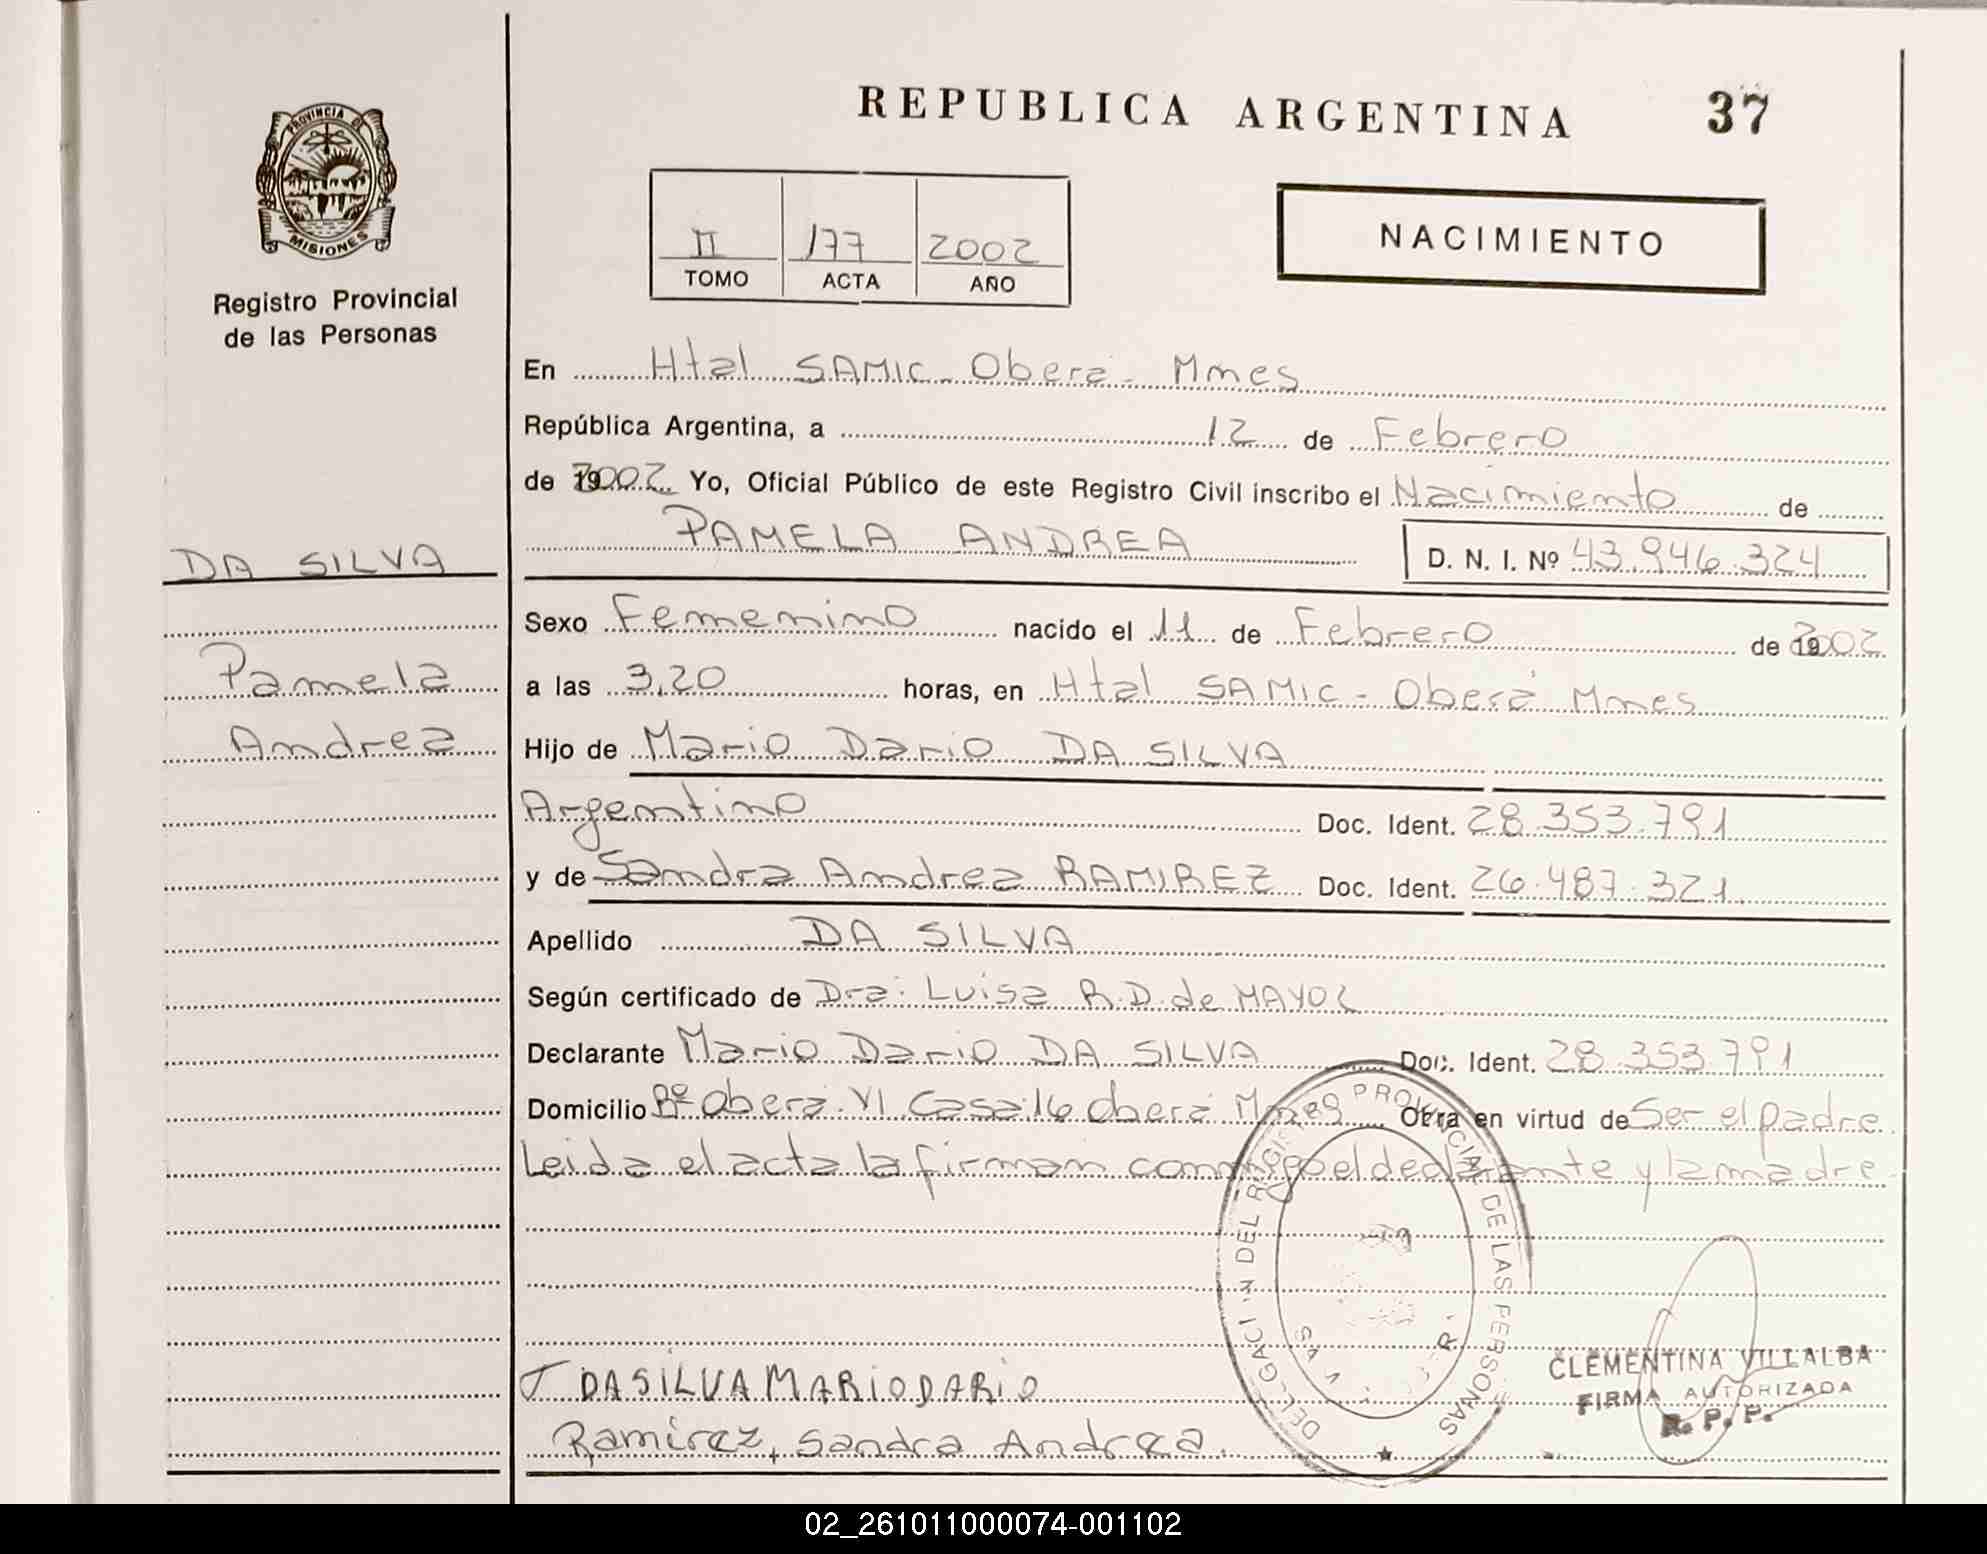 REPUBLICA ARGENTINA 37
PROVINCIA DE
MISIONES
Registro Provincial
de las Personas
II 177 2002
TOMO ACTA AÑO
NACIMIENTO
En Htal SAMIC - Oberá - Mnes
República Argentina, a 12 de Febrero
de 2002 Yo, Oficial Público de este Registro Civil inscribo el Nacimiento de
PAMELA ANDREA D. N. I. Nº 43.946.324
DA SILVA
Pamela
Andrea
Sexo Femenino nacido el 11 de Febrero de 2002
a las 3,20 horas, en Htal SAMIC - Oberá Mnes
Hijo de Mario Dario DA SILVA
Argentino Doc. Ident. 28.353.791
y de Sandra Andrea RAMIREZ Doc. Ident. 26.487.321
Apellido DA SILVA
Según certificado de Dra. Luisa R.D. de MAYOL
Declarante Mario Dario DA SILVA Doc. Ident. 28.353.791
Domicilio Bº Oberá VI Casa 16 Oberá Mnes Obra en virtud de Ser el padre
Leida el acta la firman conmigo el declarante y la madre
DEL REGISTRO PROVINCIAL DE LAS PERSONAS
DA SILVA MARIO DARIO
Ramirez, Sandra Andrea
CLEMENTINA VILLALBA
FIRMA AUTORIZADA
R. P. P.
02_261011000074-001102